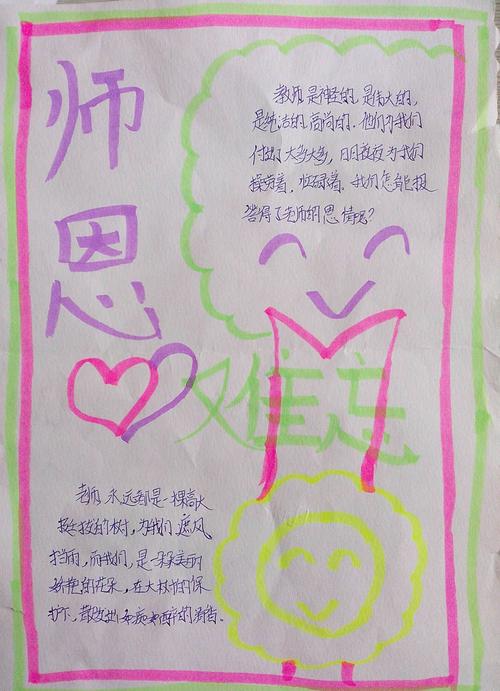 师恩
难忘
教师是神轻的,是伟大的,
是纯洁的,高尚的.他们为我们
付出了太多太多,日日夜夜为我们
操劳着,忙碌着.我们怎能报
答得了老师的恩情呢?
老师,永远都是一棵高大
挺拔的树,为我们遮风
挡雨,而我们,是一朵朵美丽
娇艳的花朵,在大树的保
护下,散发出如痴如醉的清香.